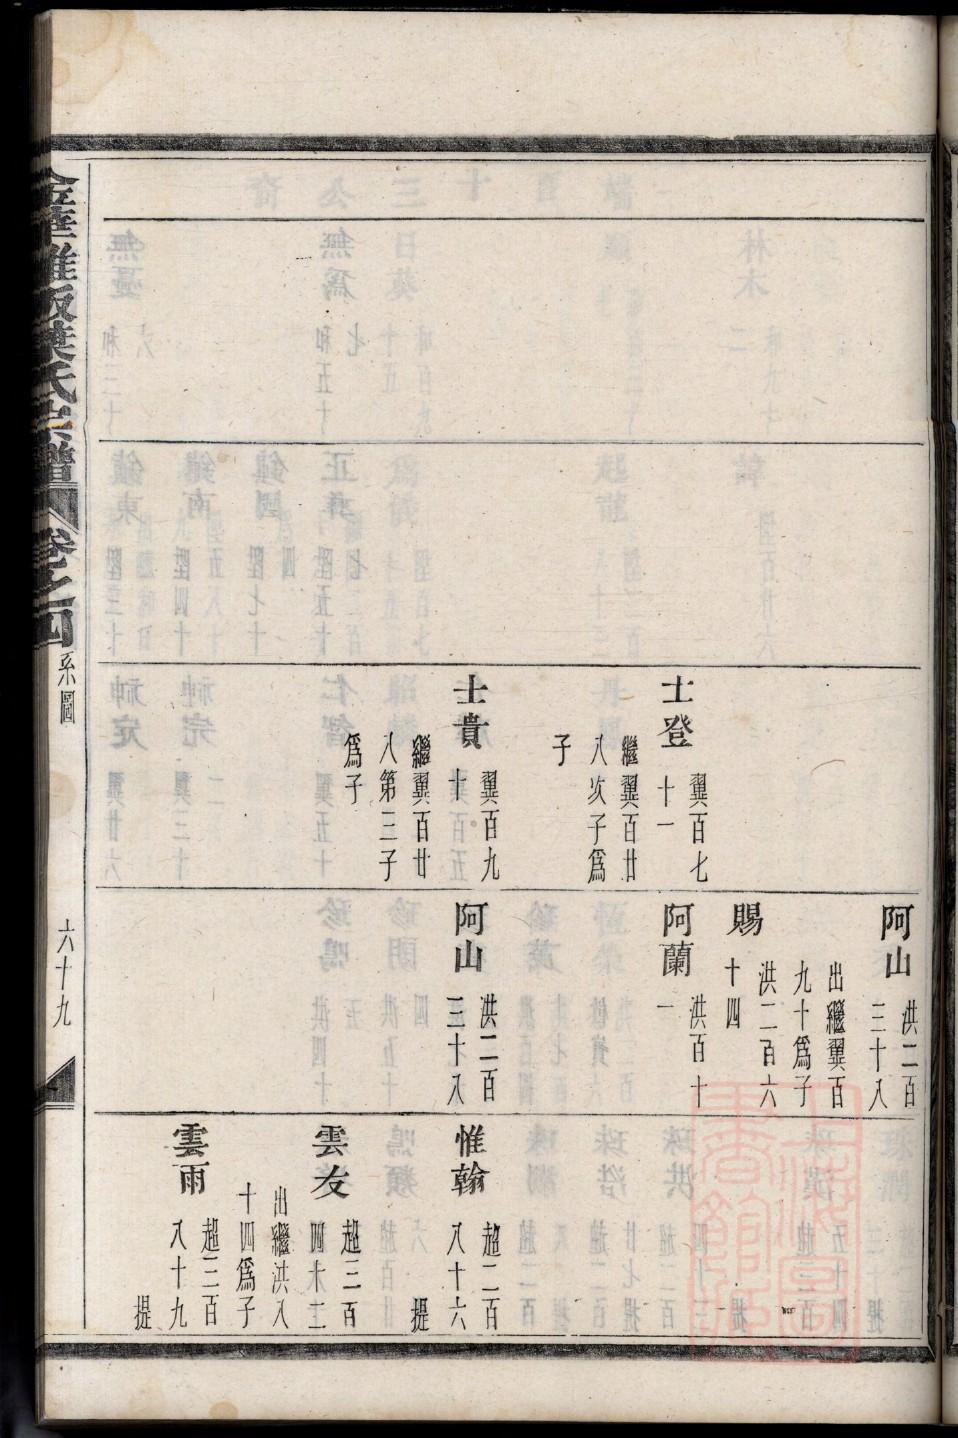 士登
翼百七
十一
繼翼百廿
八次子爲
子
士貴
翼百九
十
繼翼百廿
八第三子
爲子
阿山
洪二百
三十八
出繼翼百
九十爲子
賜
洪二百六
十四
阿蘭
洪百十
一
阿山
洪二百
三十八
惟翰
超二百
八十六
提
雲友
超三百
四十二
出繼洪八
十四爲子
雲雨
超三百
八十九
提
金華雅畈葉氏宗譜
卷之四
系圖
六十九